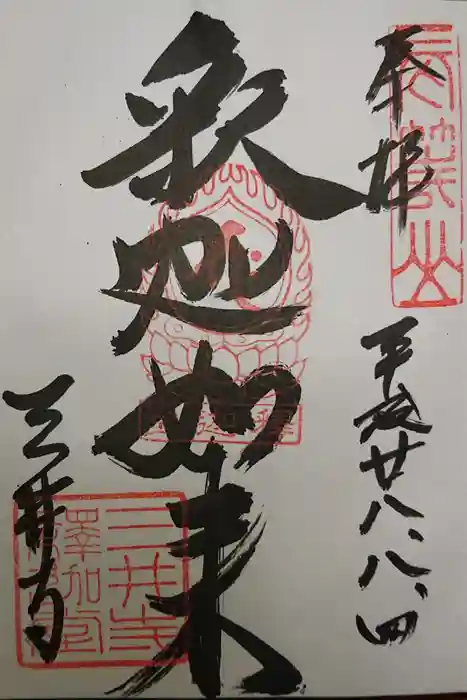 奉拝
長等山
平成廿八、八、四
釈迦如来
三井寺
三井寺
釋迦堂